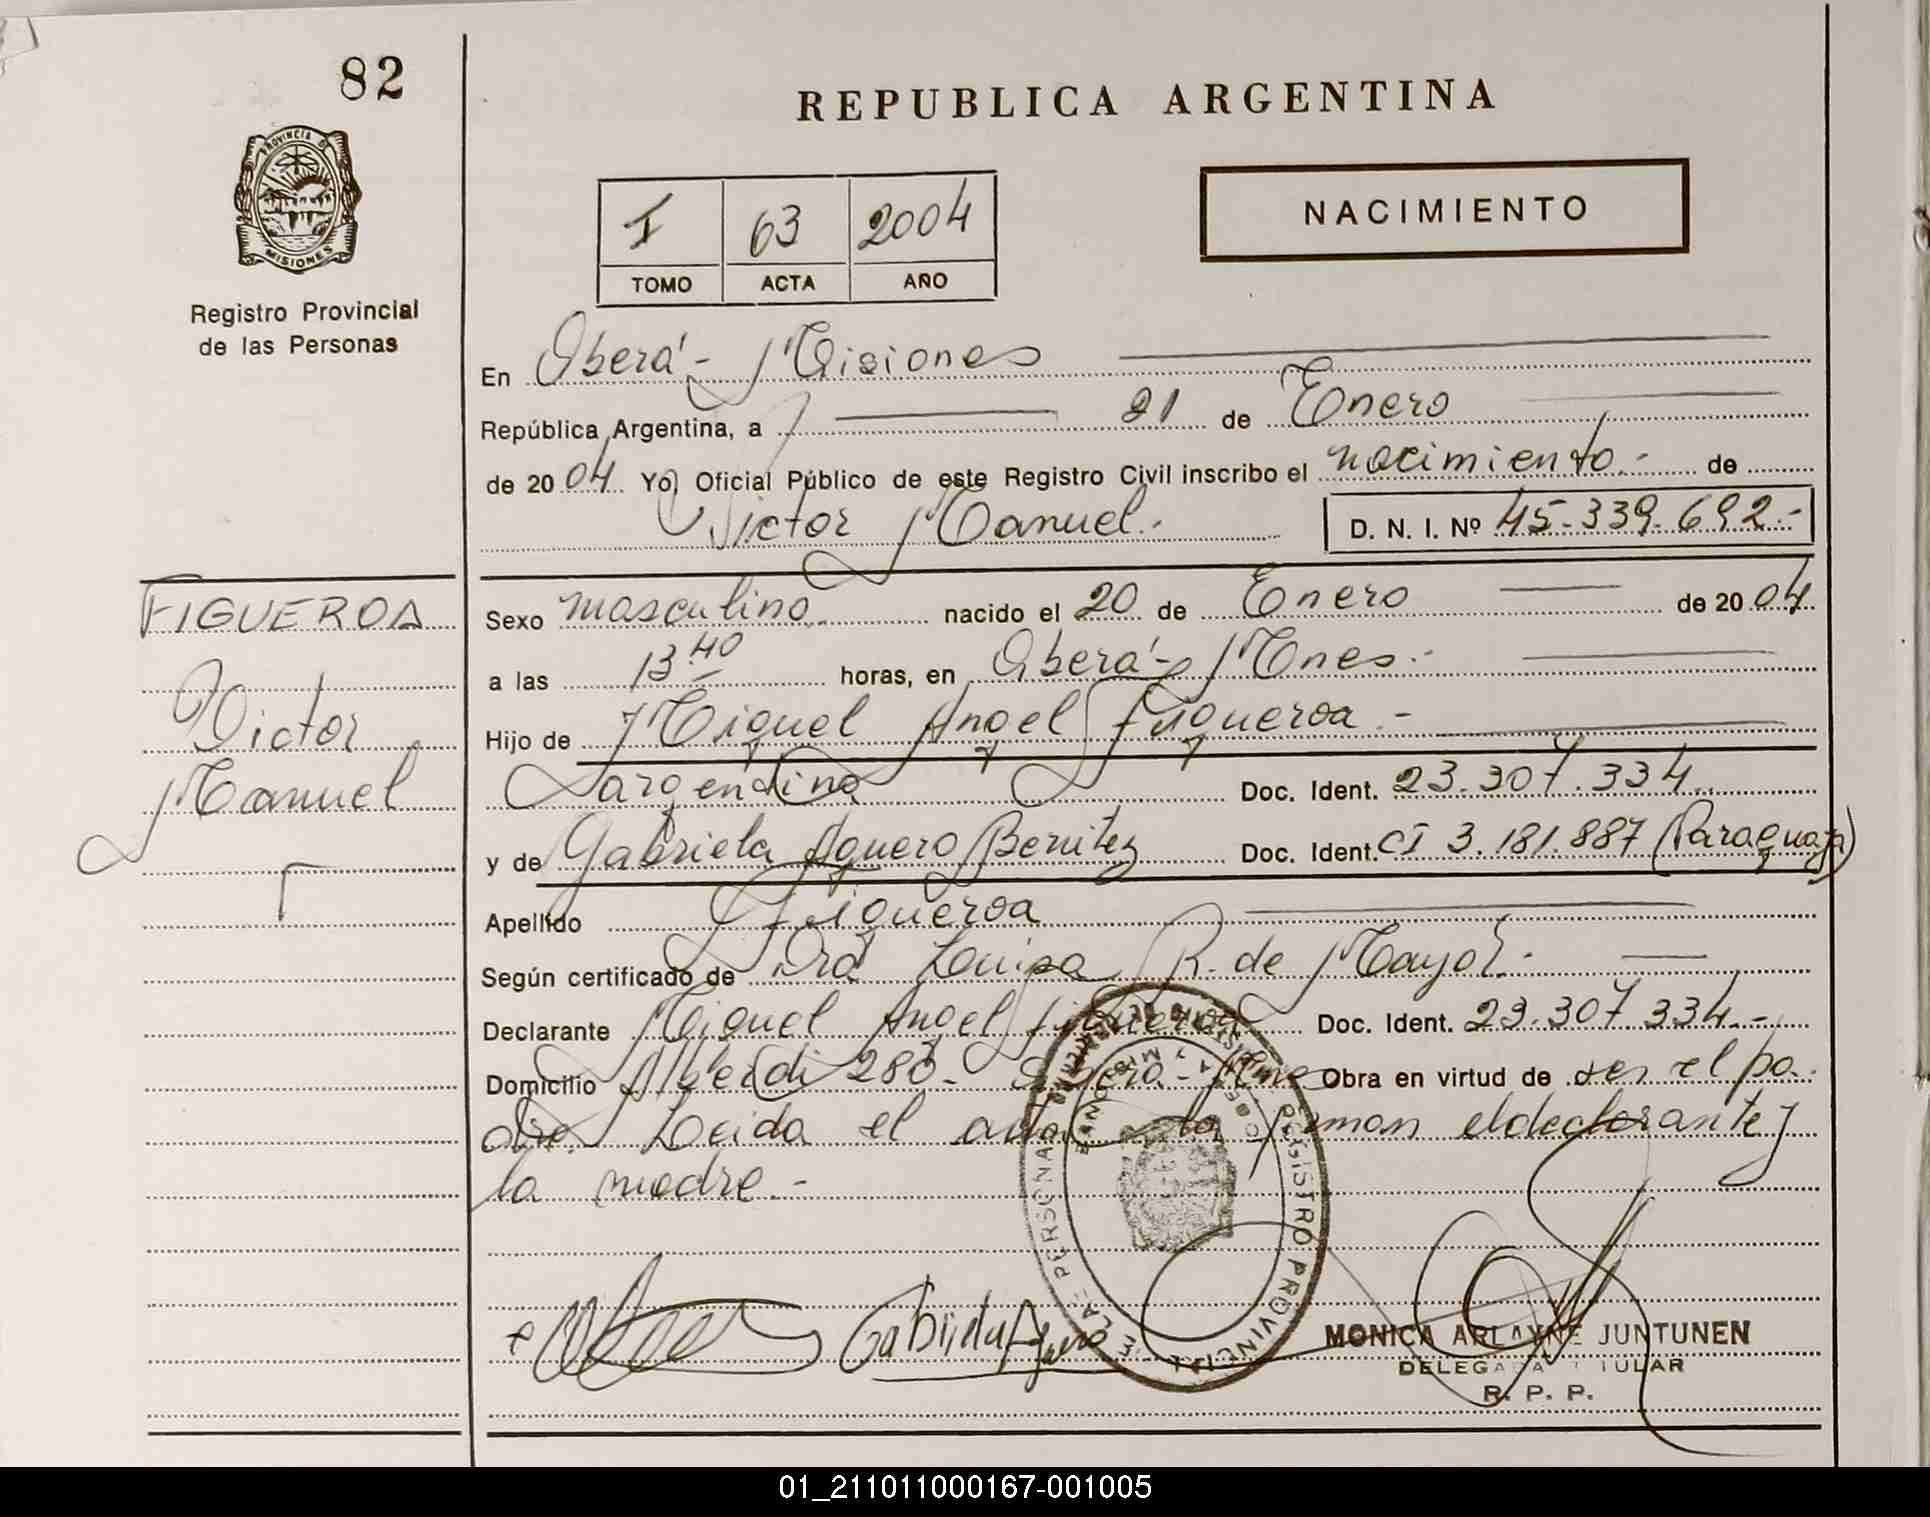 82
REPUBLICA ARGENTINA
PROVINCIA DE
MISIONES
Registro Provincial
de las Personas
I 63 2004
TOMO ACTA AÑO
NACIMIENTO
En Oberá - Misiones
República Argentina, a 21 de Enero
de 2004 Yo, Oficial Público de este Registro Civil inscribo el nacimiento.- de
Victor Manuel.- D. N. I. Nº 45.339.692.-
FIGUEROA
Victor
Manuel
Sexo masculino nacido el 20 de Enero de 2004
a las 13.40 horas, en Oberá - Mnes.-
Hijo de Miguel Angel Figueroa.-
argentino Doc. Ident. 23.307.334
y de Gabriela Aguero Benitez Doc. Ident. CI 3.181.887 (Paraguaya)
Apellido Figueroa
Según certificado de Dra Luisa R. de Mayol.-
Declarante Miguel Angel Figueroa Doc. Ident. 23.307.334.-
Domicilio Alberdi 280 - Oberá - Mnes Obra en virtud de ser el pa
dre. Leida el acta la firman el declarante y
la madre.-
REGISTRO PROVINCIAL DE LAS PERSONAS
Gabriela Aguero
MONICA ARLAYNE JUNTUNEN
DELEGADA TITULAR
R. P. P.
01_211011000167-001005